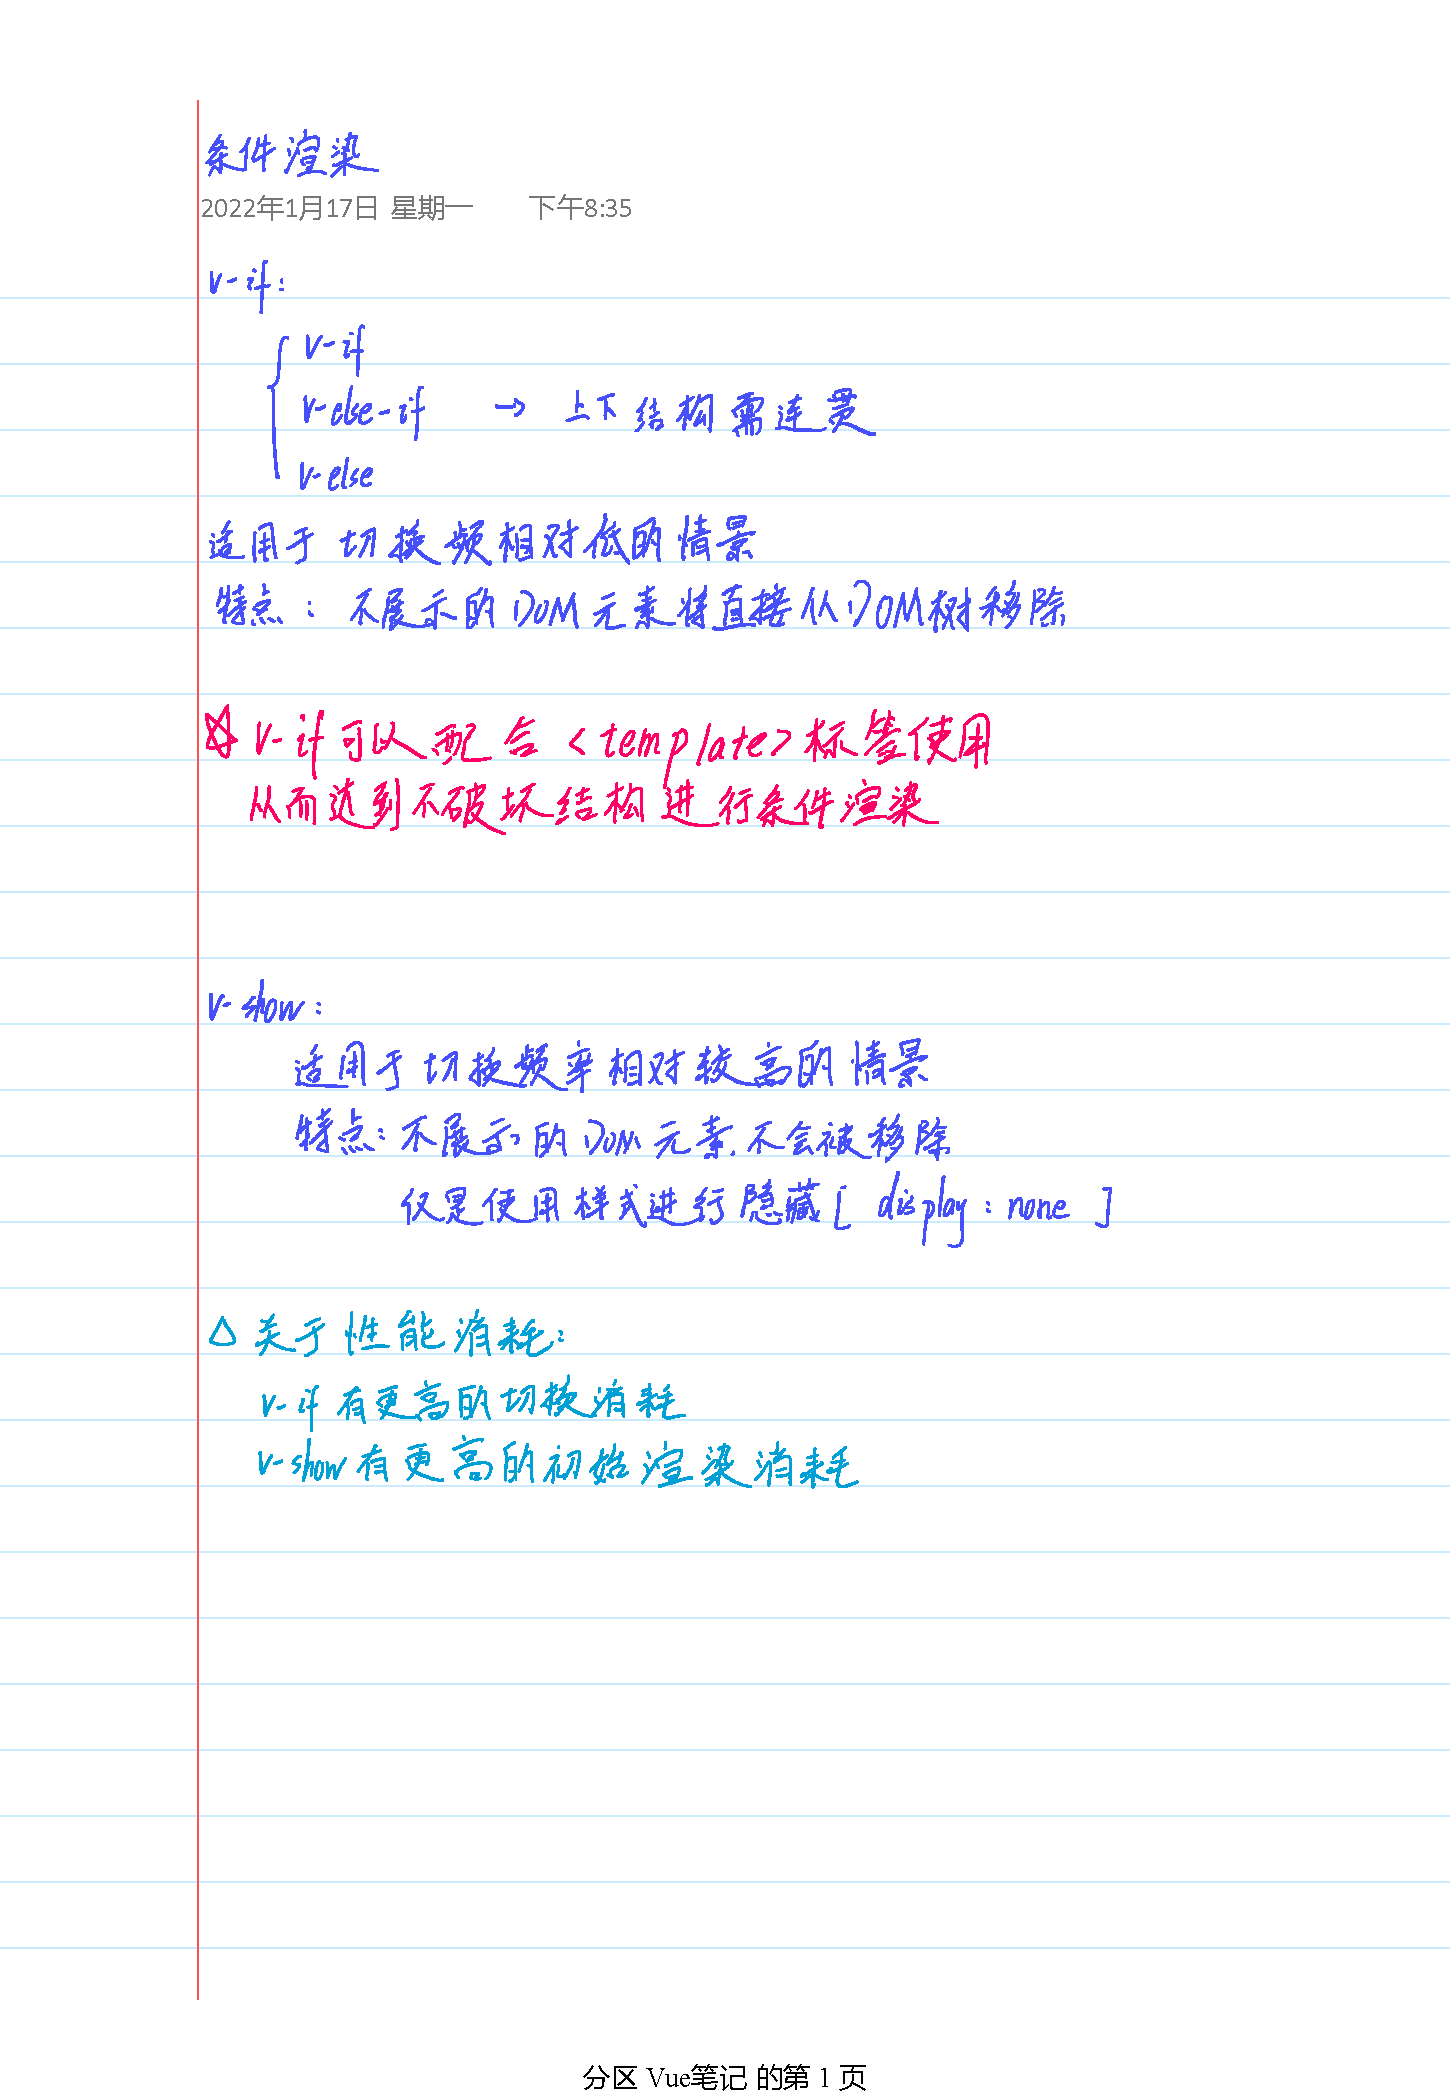 条件渲染
2022年1月17日 星期一 下午8:35
v-if:
v-if
v-else-if → 上下结构需连贯
v-else
适用于切换频相对低的情景
特点：不展示的DOM元素将直接从DOM树移除
☆ v-if可以配合<template>标签使用
从而达到不破坏结构进行条件渲染
v-show:
适用于切换频率相对较高的情景
特点:不展示的DOM元素.不会被移除
仅是使用样式进行隐藏[ display: none ]
△ 关于性能消耗:
v-if有更高的切换消耗
v-show有更高的初始渲染消耗
分区 Vue笔记 的第 1 页